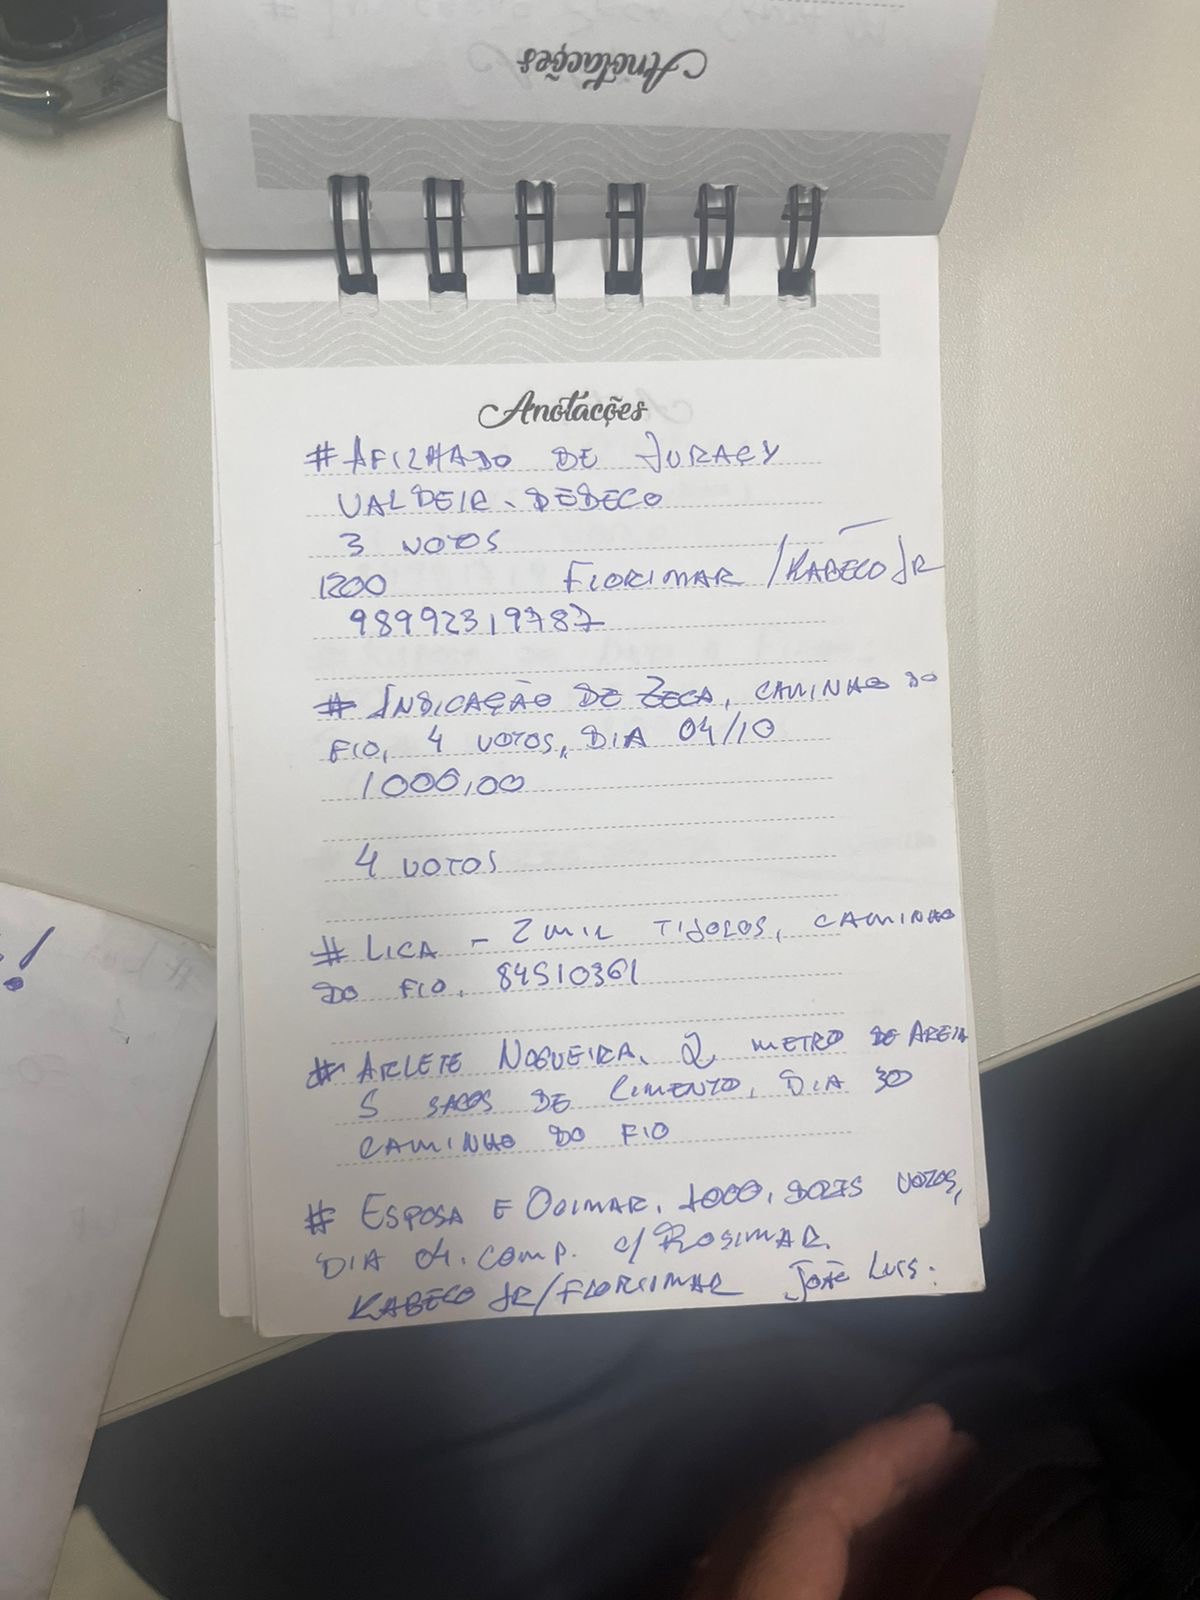 Anotações
Anotações
# AFILHADO DE JURACY
VALDEIR. DEDECO
3 VOTOS
1200 FLORIMAR / KABECO JR
98992319787
# INDICAÇÃO DE ZECA, CAMINHO DO
FIO, 4 VOTOS, DIA 04/10
1000,00
4 VOTOS
# LICA - 2 MIL TIJOLOS, CAMINHO
DO FIO. 84510361
# ARLETE NOGUEIRA. 2 METRO DE AREIA
5 SACOS DE CIMENTO, DIA 30
CAMINHO DO FIO
# ESPOSA E ODIMAR. 1000. DOIS VOTOS,
DIA 04. COMP. C/ ROSIMAR.
KABECO JR/FLORIMAR JOÃO LUIS.
!